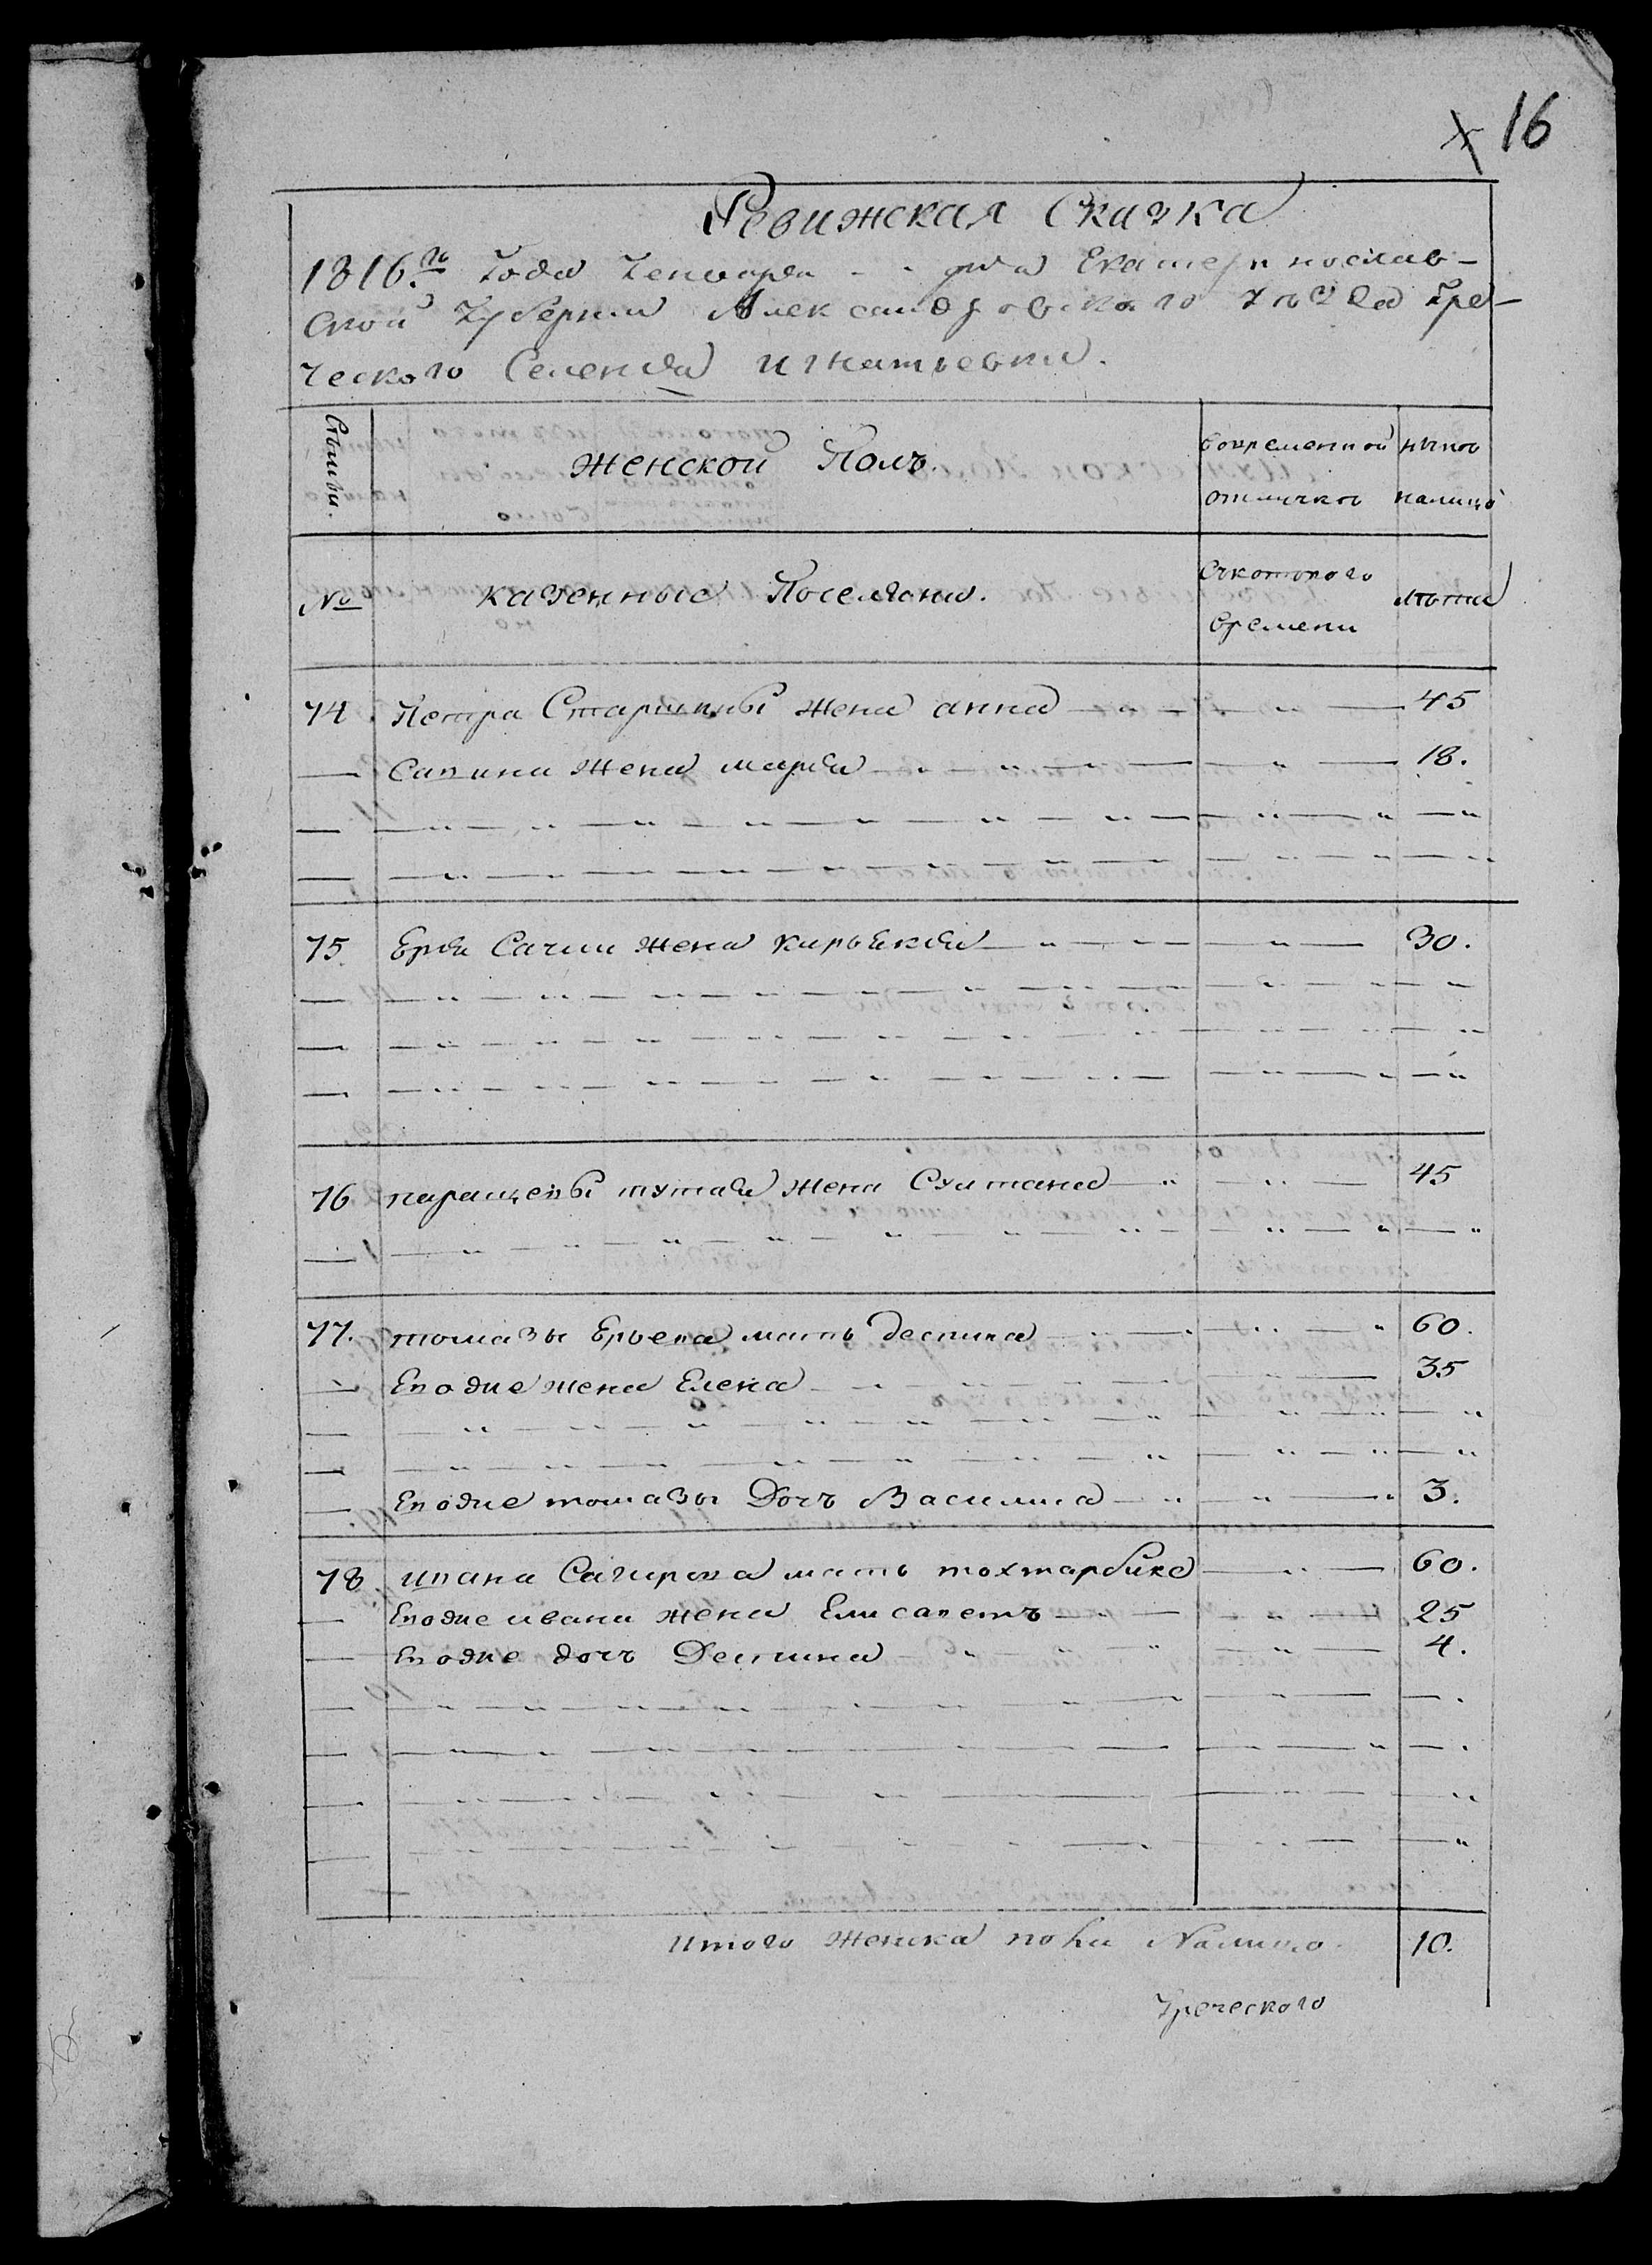 16
Ревижская Сказка
1816.го Года Генваря дня Екатеринослав-
ской Губернии Александровского уѣзда Гре-
ческого Селения Игнатьевки.
Статьи.
Женской Полъ.
Вовременной отлучкѣ
нынѣ налицо
№
казенные Поселяни.
Съкоторого времени
лѣта
74 Петра Старшины жена анна 45
Савина жена марѳа 18.
75 Ерѳи жена 30.
76 жена Султана 45
77. томазы мать деспина 60.
Еводие жена Елена 35
Еводие томазы Дочъ Василиса 3.
78 ивана мать тохтарбике 60.
Еводие ивана жена Елисаветъ 25
Еводие дочъ Деспина 4.
итого женска пола Налицо. 10.
Греческого